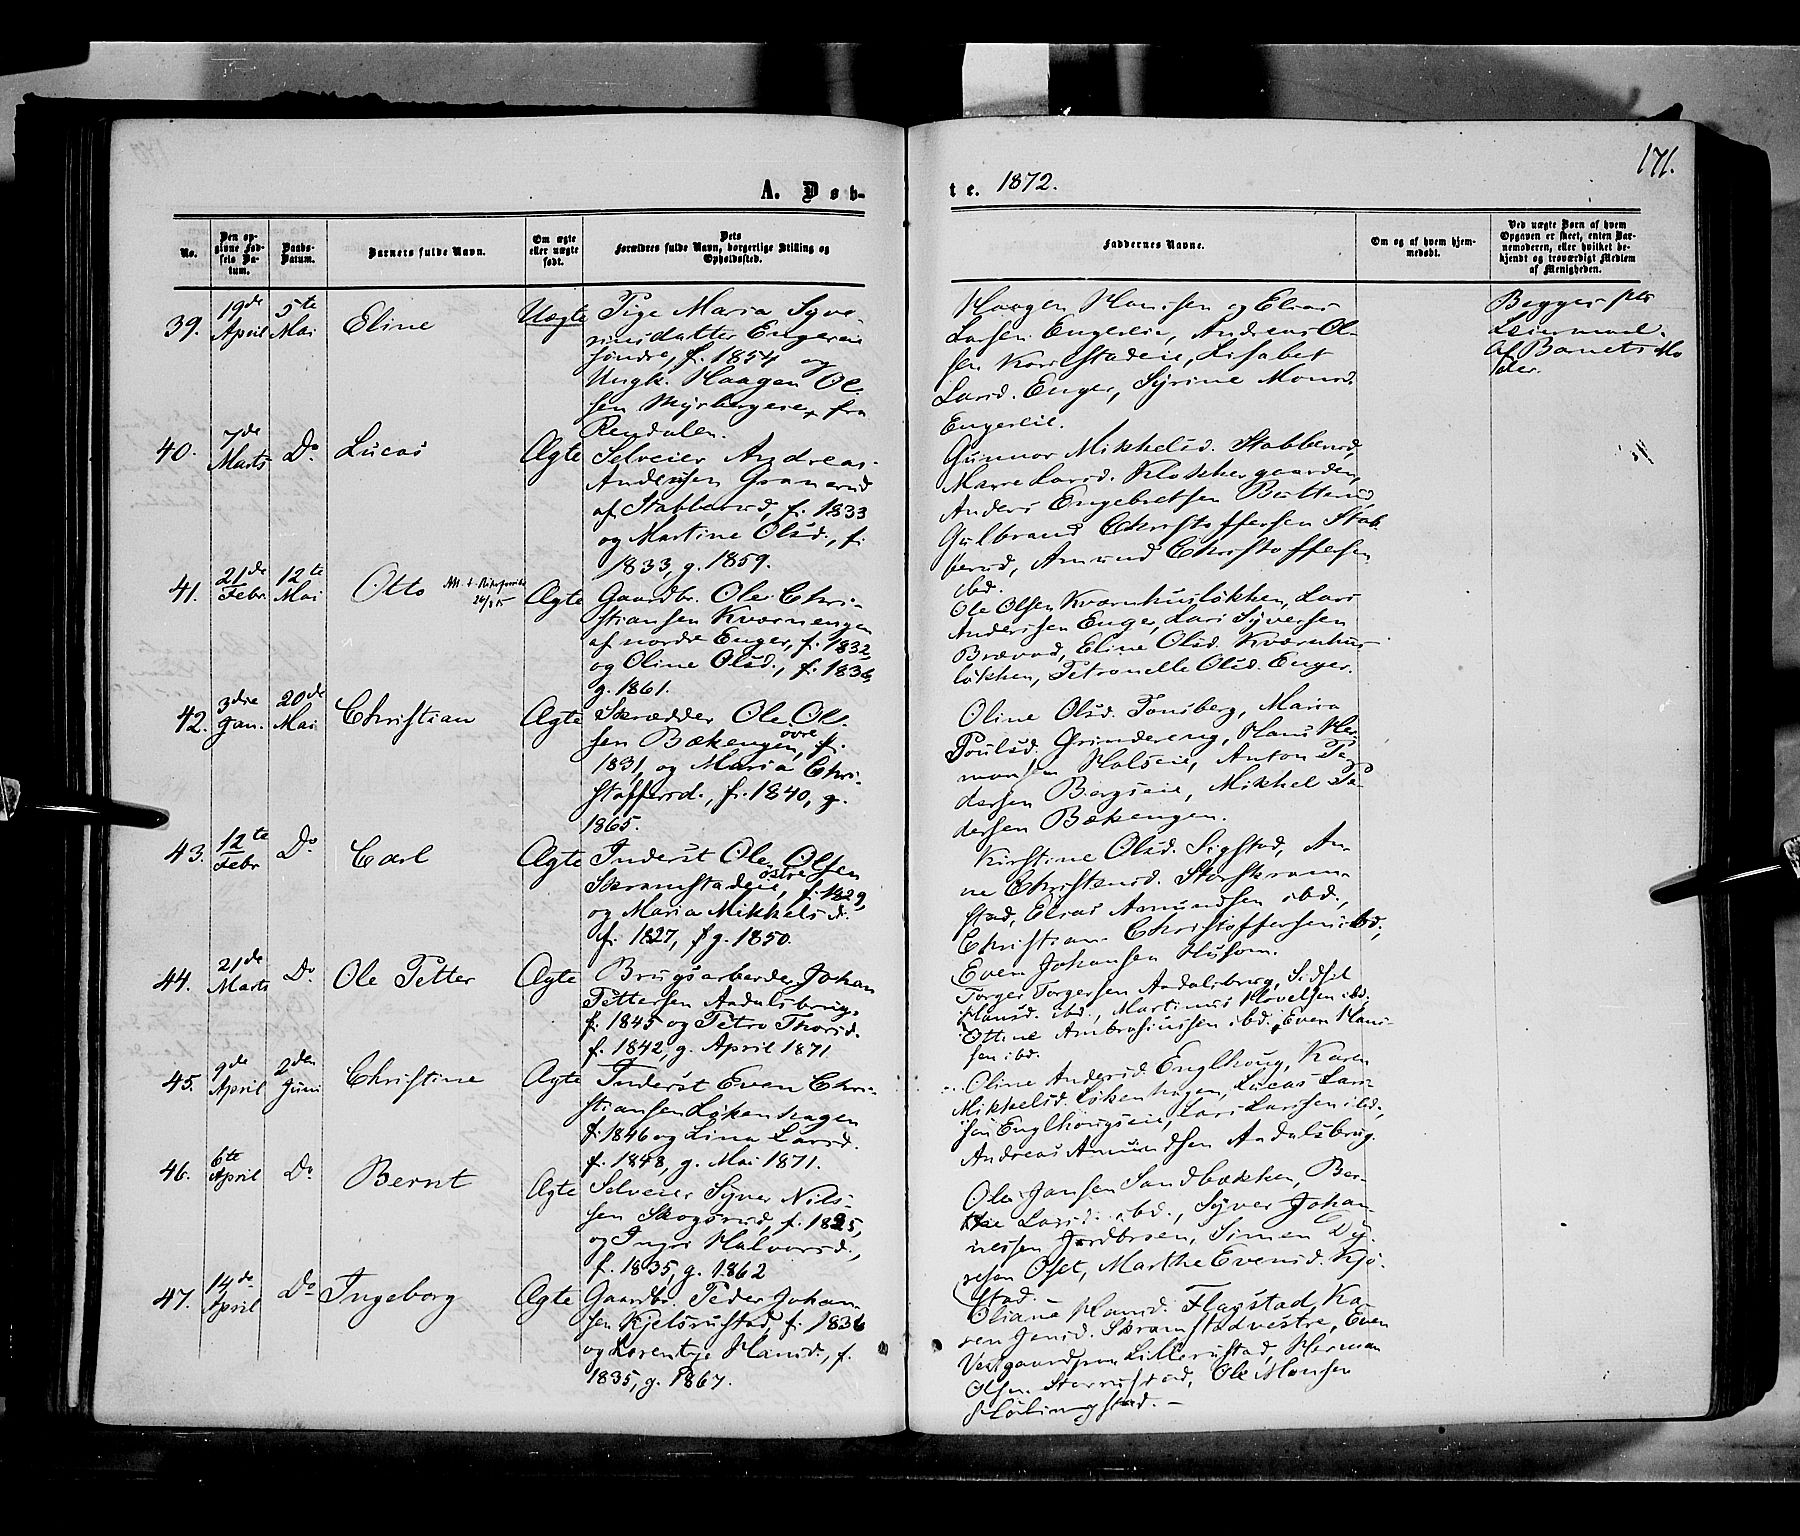 171.
A. Døb-
te. 1872.
No.
Den op-
givne Fød-
sels Da-
tum.
Daabs-
Datum.
Barnets fulde Navn.
Om ægte
eller uægte
født.
Dets
Forældres fulde Navn, borgerlige Stilling og
Opholdssted.
Faddernes Navne.
Om og af hvem hjem-
medøbt.
Ved uægte Børn af hvem
Opgaven er skeet, enten Bar-
nemoderen, eller hvilket be-
kjendt og troværdigt Medlem
af Menigheden.
39. 19de April 5te Mai Eline Uægte
Pige Maria Syve-
rinsdatter Engereie
søndre, f. 1854 og
Ungk. Haagen Ol-
sen Myrbergeie, fra
Rendalen.
Haagen Hansen og Elias
Larsen Engereie, Andreas Ol-
sen Karlstadeie, Lisabet
Larsd. Enger, Syrine Monsd.
Engereie.
Begges 1ste
Leiermaal.
Af Barnets Mo
der.
40. 7de Marts Do. Lucas Ægte
Selveier Andreas
Andersen Granerud
af Stabberud, f. 1833
og Martine Olsd., f.
1833, g. 1859.
Gunnor Mikkelsd. Stabberud,
Maren Larsd. Klokkergaarden,
Anders Engebretsen Butterud,
Gulbrand Christoffersen Stab-
berud, Amund Christoffersen
ibd.
41. 21de Febr. 12te Mai Otto Ægte
Gaardbr. Ole Chri-
stiansen Kværnengen
af nordre Enger, f. 1832,
og Oline Olsd., f. 1836,
g. 1861.
Ole Olsen Kværnhusløkken, Lars
Andersen Enger, Lars Syversen
Brævad, Eline Olsd. Kværnhus-
løkken, Petronelle Olsd. Enger.
42. 3die Jan. 20de Mai Christian Ægte
Skrædder Ole Ol-
sen Bækengen øvre, f.
1831, og Maria Chri-
stoffersd., f. 1840, g.
1865.
Oline Olsd. Tonsberg, Maria
Poulsd. Grindereng, Hans Her-
mansen Halseie, Anton Pe-
dersen Bergseie, Mikkel Pe-
dersen Bækengen.
43. 12te Febr Do. Carl Ægte
Inderst Ole Olsen
Skramstadeie østre, f. 1829,
og Maria Mikkelsd.
f. 1827, g. 1850.
Kirstine Olsd. Sigstad, An-
ne Christensd. Storskram-
stad, Elias Amundsen ibd.,
Christian Christoffersen ibd.,
Even Johansen Husom.
44. 21de Marts Do. Ole Petter Ægte
Brugsarbeider Johan
Pettersen Aadalsbrug,
f. 1845 og Petra Thorsd.
f. 1842, g. April 1871
Torger Torgersen Aadalsbrug, Sidsel
Hansd. ibd., Martinus Hovelsen ibd.,
Ottine Ambrosiussen ibd., Even Han-
sen ibd.
45. 9de April 2den Juni Christine Ægte
Inderst Even Chri-
stiansen Løkenhagen
f. 1846 og Lina Larsd.
f. 1848, g. Mai 1871.
Oline Andersd. Englhoug, Karen
Mikkelsd. Løkenhagen, Lucas Lar-
sen Englhougseie, Lars Larsen ibd.,
Andreas Amundsen Aadalsbrug.
46. 6te April Do. Bernt Ægte
Selveier Syver Nils-
sen Skogsrud, f. 1825,
og Ingri Halvorsd.,
f. 1835, g. 1862
Ole Jansen Sandbækken, Ber-
the Larsd. ibd., Syver Johan-
nessen Jordbrøen, Simen Dy-
resen Oset, Marthe Evensd. Kjø-
stad.
47. 14de April Do Ingeborg Ægte
Gaardbr. Peder Johan-
sen Kjelsrustad, f. 1836
og Lorentze Hansd., f.
1835, g. 1867.
Oliana Hansd. Flagstad, Ka-
ren Jensd. Skramstad vestre, Even
Vestgaardsen Lillerustad, Herman
Olsen Storrustad, Ole Monsen